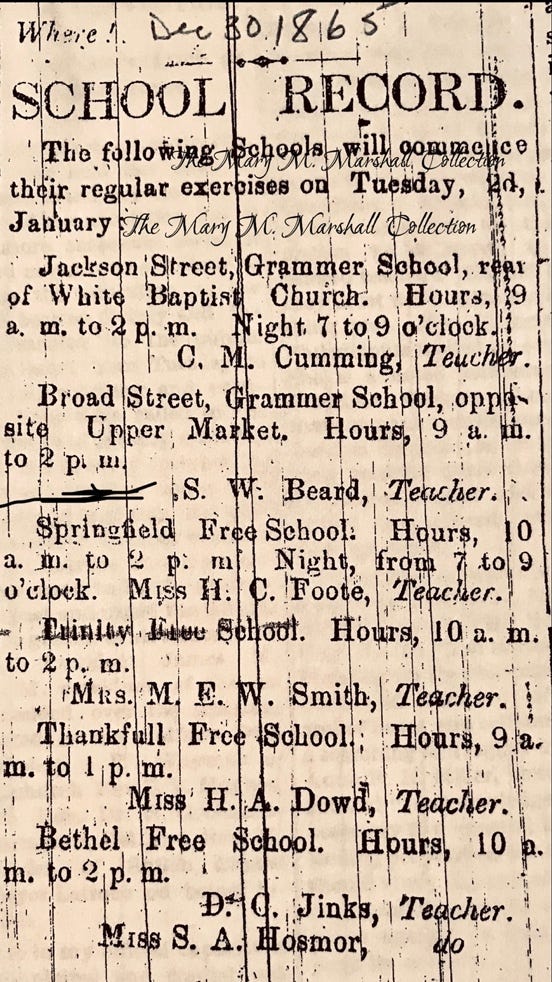 Where!. Dec 30 1865
SCHOOL RECORD.
The following Schools will commence
The Mary M. Marshall Collection
their regular exercises on Tuesday, 2d,
January:
The Mary M. Marshall Collection
Jackson Street, Grammer School, rear
of White Baptist Church. Hours, 9
a. m. to 2 p. m. Night 7 to 9 o'clock.
C. M. Cumming, Teacher.
Broad Street, Grammer School, oppo-
site Upper Market. Hours, 9 a. m.
to 2 p. m.
S. W. Beard, Teacher.
Springfield Free School. Hours, 10
a. m. to 2 p. m Night, from 7 to 9
o'clock. Miss H. C. Foote, Teacher.
Trinity Free School. Hours, 10 a. m.
to 2 p. m.
Mrs. M. E. W. Smith, Teacher.
Thankfull Free School. Hours, 9 a.
m. to 1 p. m.
Miss H. A. Dowd, Teacher.
Bethel Free School. Hours, 10 a.
m. to 2 p. m.
D. C. Jinks, Teacher.
Miss S. A. Hosmor, do